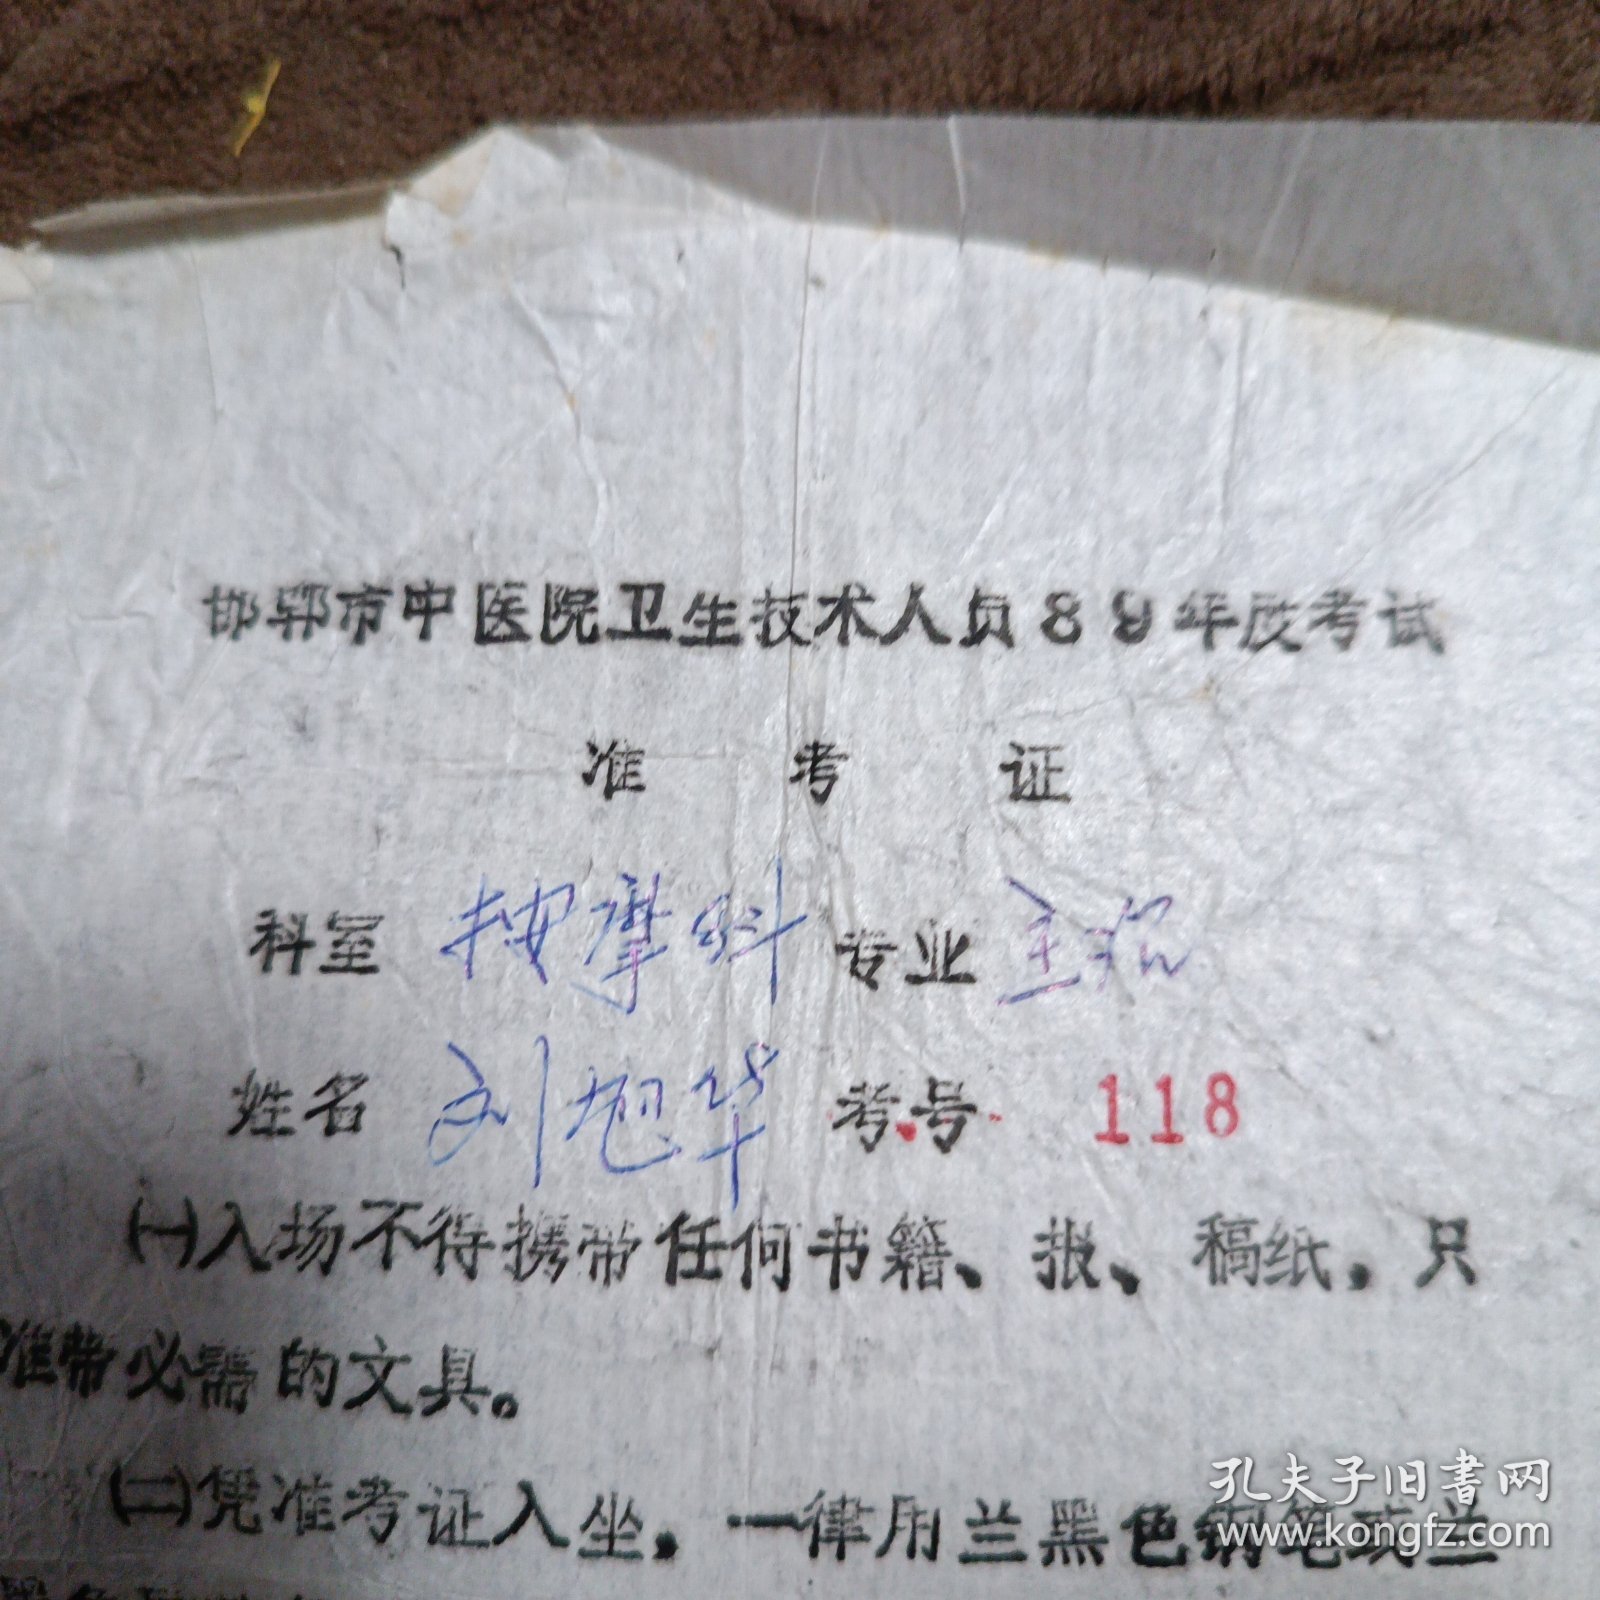 邯郸市中医院卫生技术人员89年度考试
准考证
科室 按摩科 专业
姓名 刘旭华 考号 118
(一)入场不得携带任何书籍、报、稿纸，只
准带必需的文具。
(二)凭准考证入坐，一律用兰黑色钢笔或兰
孔夫子旧书网
www.kongfz.com